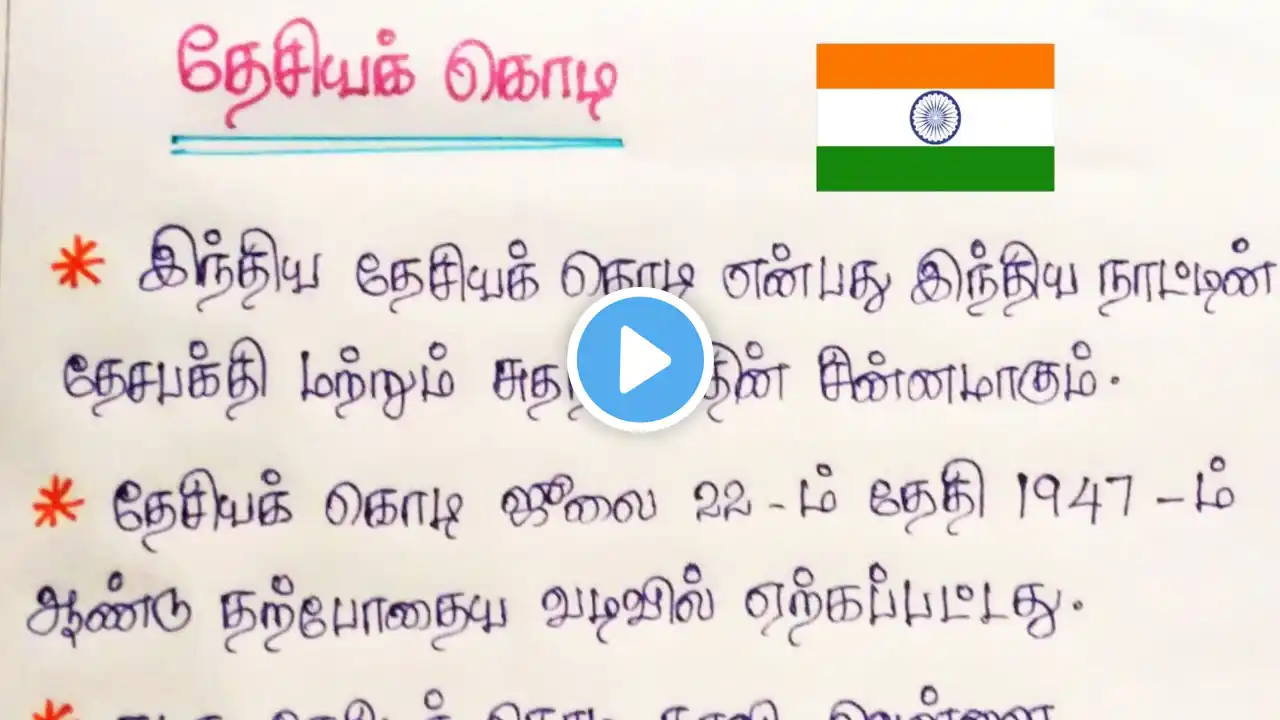 தேசியக் கொடி
* இந்திய தேசியக் கொடி என்பது இந்திய நாட்டின்
தேசபக்தி மற்றும் சின்னமாகும்.
* தேசியக் கொடி ஜூலை 22-ம் தேதி 1947-ம்
ஆண்டு தற்போதைய வடிவில் ஏற்கப்பட்டது.